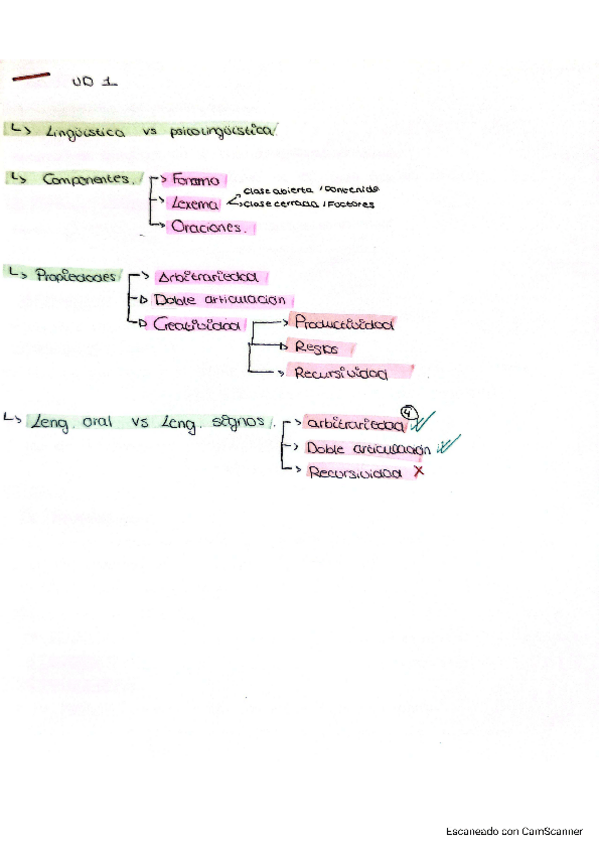 UD 1
Lingüística vs psicolingüística
Componentes.
Fonemo
Lexema
clase abierta / contenido
clase cerrada / Fuctores
Oraciones.
Propiedades
Arbitrariedad
Doble articulación
Creatividad
Productividad
Reglas
Recursividad
Leng. oral vs Leng. signos.
4
arbitrariedad
Doble articulación
Recursividad X
Escaneado con CamScanner